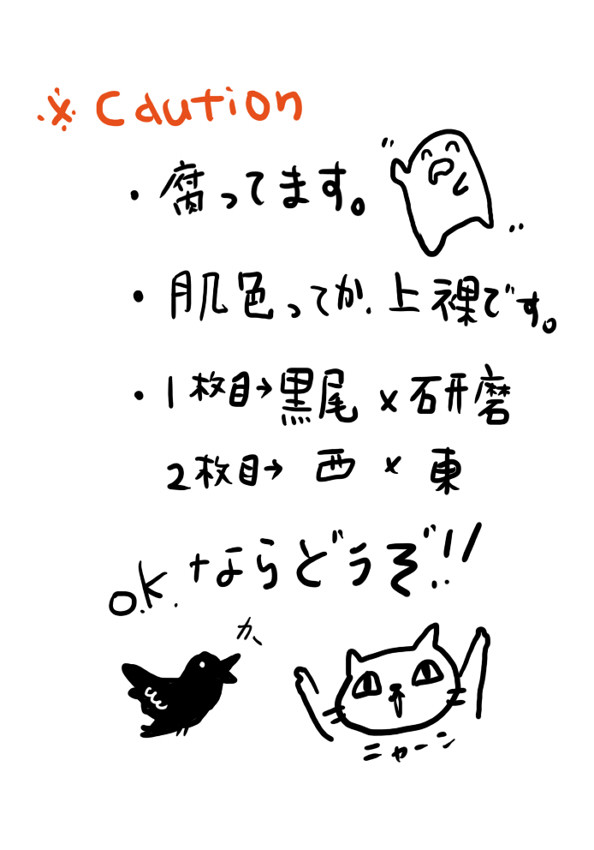 ※ Caution
・腐ってます。
・肌色ってか、上裸です。
・1枚目→黒尾×研磨
2枚目→西×東
O.K.ならどうぞ!!
カ、
ニャーン